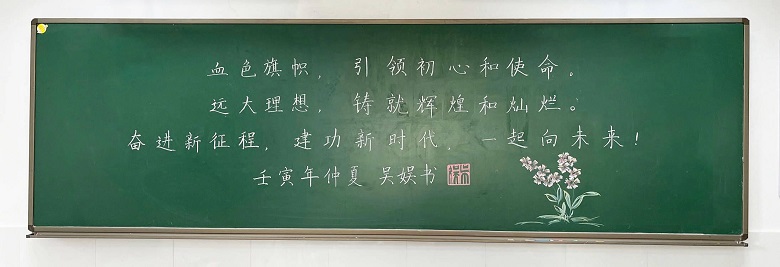 血色旗帜，引领初心和使命。
远大理想，铸就辉煌和灿烂。
奋进新征程，建功新时代，一起向未来！
壬寅年仲夏 吴娱书